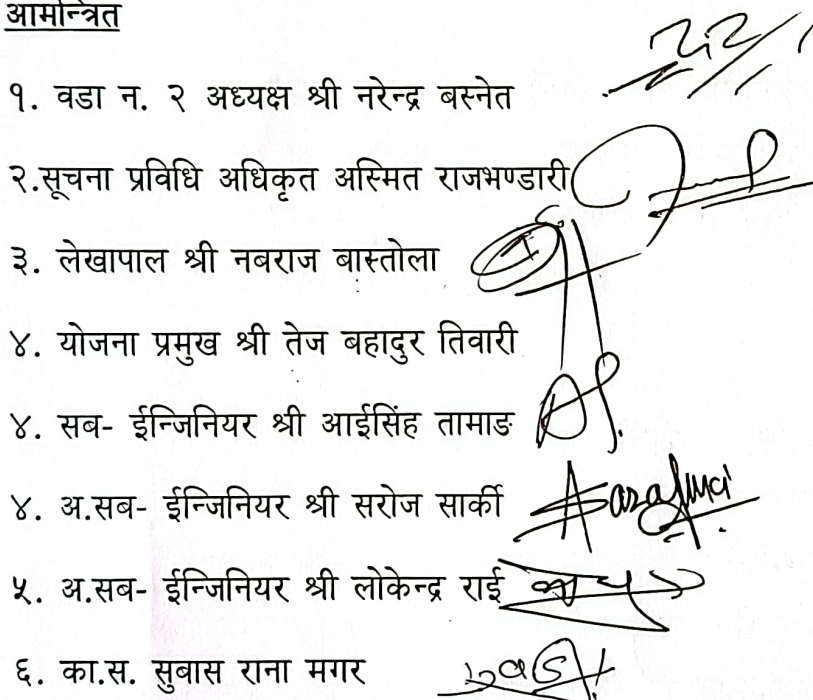 आमन्त्रित
१. वडा न. २ अध्यक्ष श्री नरेन्द्र बस्नेत
२.सूचना प्रविधि अधिकृत अस्मित राजभण्डारी
३. लेखापाल श्री नबराज बास्तोला
४. योजना प्रमुख श्री तेज बहादुर तिवारी
४. सब- ईन्जिनियर श्री आईसिंह तामाङ
४. अ.सब- ईन्जिनियर श्री सरोज सार्की
५. अ.सब- ईन्जिनियर श्री लोकेन्द्र राई
६. का.स. सुबास राना मगर